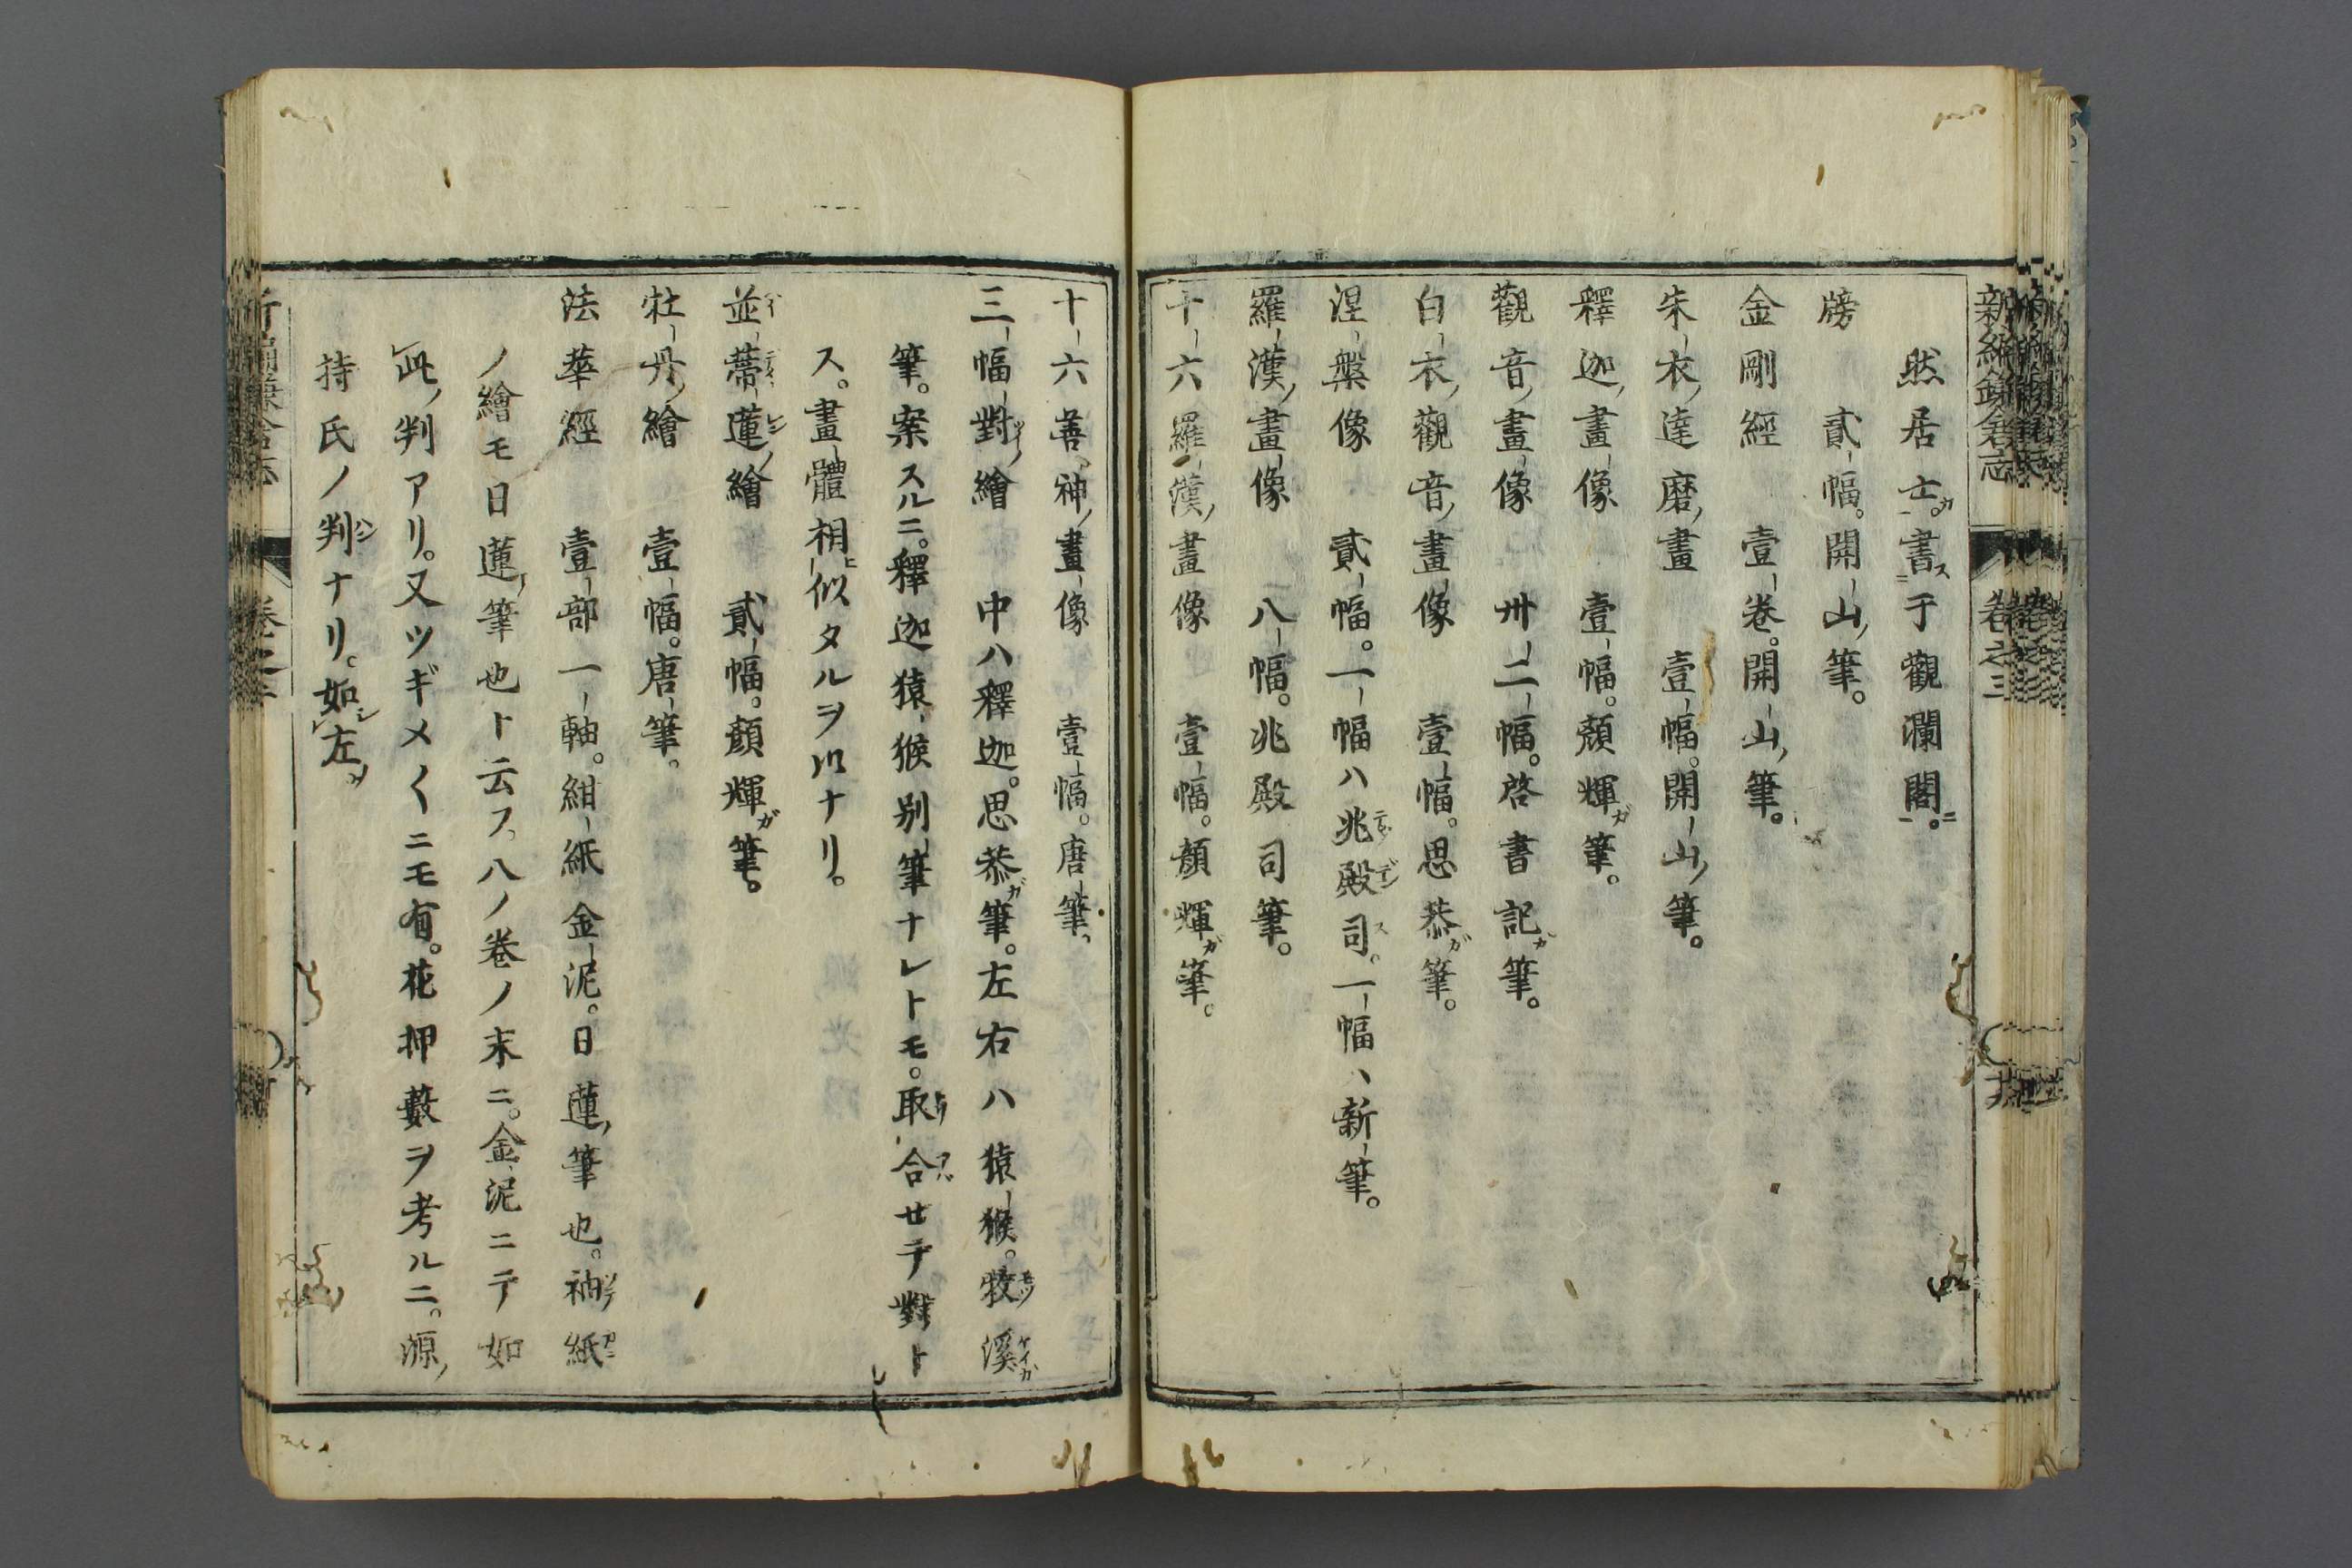 新編鎌倉志 卷之三
然居士。書于觀瀾閣。
牓 貳幅。開山筆。
金剛經 壹卷。開山筆。
朱衣達磨畫 壹幅。開山筆。
釋迦畫像 壹幅。顏輝ガ筆。
觀音畫像 卅二幅。啓書記ガ筆。
白衣觀音畫像 壹幅。思恭ガ筆。
涅槃像 貳幅。一幅ハ兆殿司。一幅ハ新筆。
羅漢畫像 八幅。兆殿司筆。
十六羅漢畫像 壹幅。顏輝ガ筆。
十六善神畫像 壹幅。唐筆。
三幅對繪 中ハ釋迦。思恭ガ筆。左右ハ猿猴。牧溪
筆。案スルニ。釋迦猿猴別筆ナレトモ。取合セテ對ト
ス。畫體相似タルヲ以ナリ。
並蒂蓮繪 貳幅。顏輝ガ筆。
牡丹繪 壹幅。唐筆。
法華經 壹部一軸。紺紙金泥。日蓮筆也。袖紙
ノ繪モ日蓮筆也ト云フ。八ノ卷ノ末ニ。金泥ニテ如
此判アリ。又ツギメ〱ニモ有。花押藪ヲ考ルニ。源
持氏ノ判ナリ。如左。